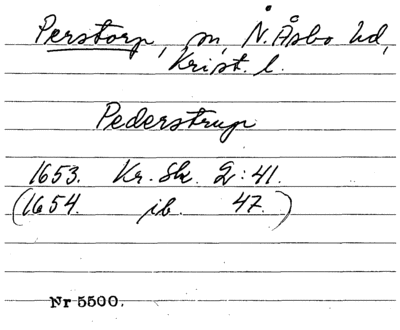 Perstorp, sn, N. Åsbo hd,
Krist. l.
Pederstrup
1653. Kr. Sk. 2:41.
(1654. ib 47.)
Nr 5500.